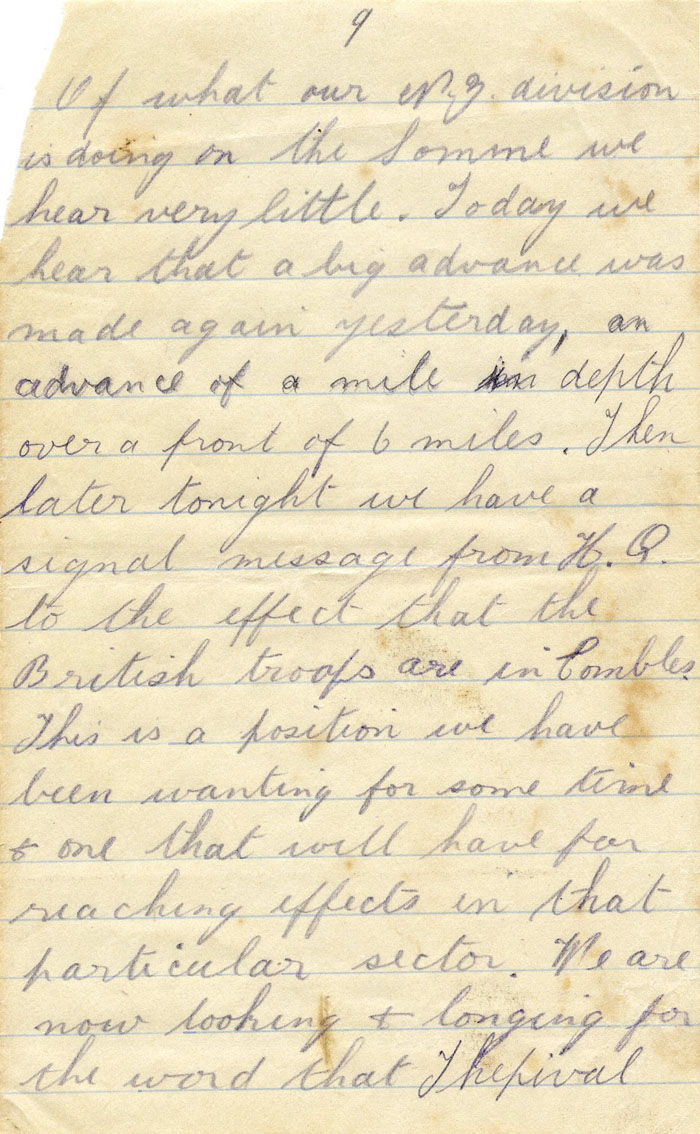 9
Of what our N.Z. division
is doing on the Somme we
hear very little. Today we
hear that a big advance was
made again yesterday, an
advance of a mile in depth
over a front of 6 miles. Then
later tonight we have a
signal message from H.Q.
to the effect that the
British troops are in Combles.
This is a position we have
been wanting for some time
& one that will have far
reaching effects in that
particular sector. We are
now looking & longing for
the word that Thepival